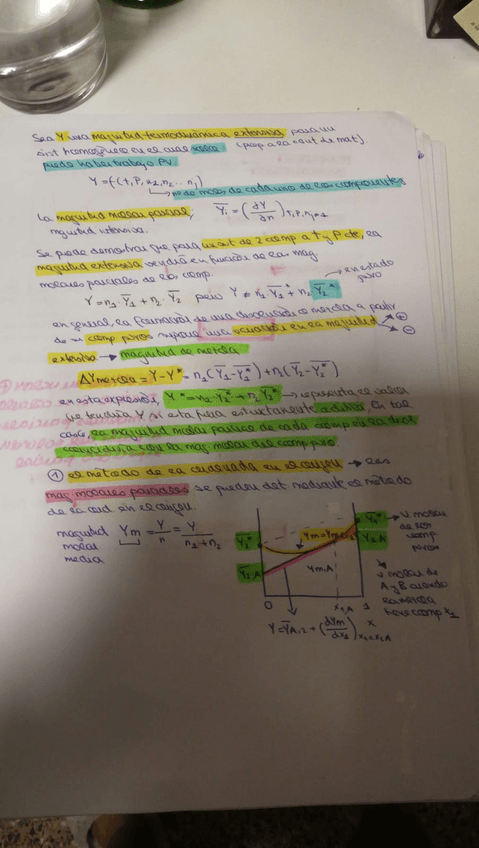 Sea Y una magnitud termodinámica extensiva para un
sist homogéneo en el cual solo (prop a la cant de mat).
puede haber trabajo PV.
Y = f(T, P, n1, n2... ni)
nº de moles de cada uno de los componentes
La magnitud molar parcial, Ȳi = (dY/dn) T, P, nj≠i
magnitud intensiva.
Se puede demostrar que para un sist de 2 comp a T y P cte, la
magnitud extensiva vendrá en función de las mag
molares parciales de los comp.
en estado puro
Y = n1·Ȳ1 + n2·Ȳ2 pero Y ≠ n1·Ȳ1* + n2·Ȳ2*
en general, la formación de una disolución o mezcla a partir
de sus comp puros supone una variación en la magnitud ⊕ ⊖
extensiva → magnitud de mezcla
ΔYmezcla = Y - Y* = n1(Ȳ1 - Ȳ1*) + n2(Ȳ2 - Ȳ2*)
en esta expresión, Y* = n1·Y1* + n2·Y2* → representa el valor
que tendría Y si esta fuera estrictamente aditiva. En tal
caso, la magnitud molar parcial de cada comp en la disol
coincidiría con la mag molar del comp puro
① el método de la ordenada en el origen → las
mag molares parciales se pueden det mediante el método
de la ord en el origen.
magnitud molar media Ym = Y/n = Y/(n1+n2)
Y2* Y1*
Ȳ2,A Ȳ1,A
Ym,A
0 x1,A 1 x1
V molar de los comp puros
V molares de A y B cuando la mezcla tiene comp x1
Y = ȲA,2 + (dYm/dx1) x1=x1A